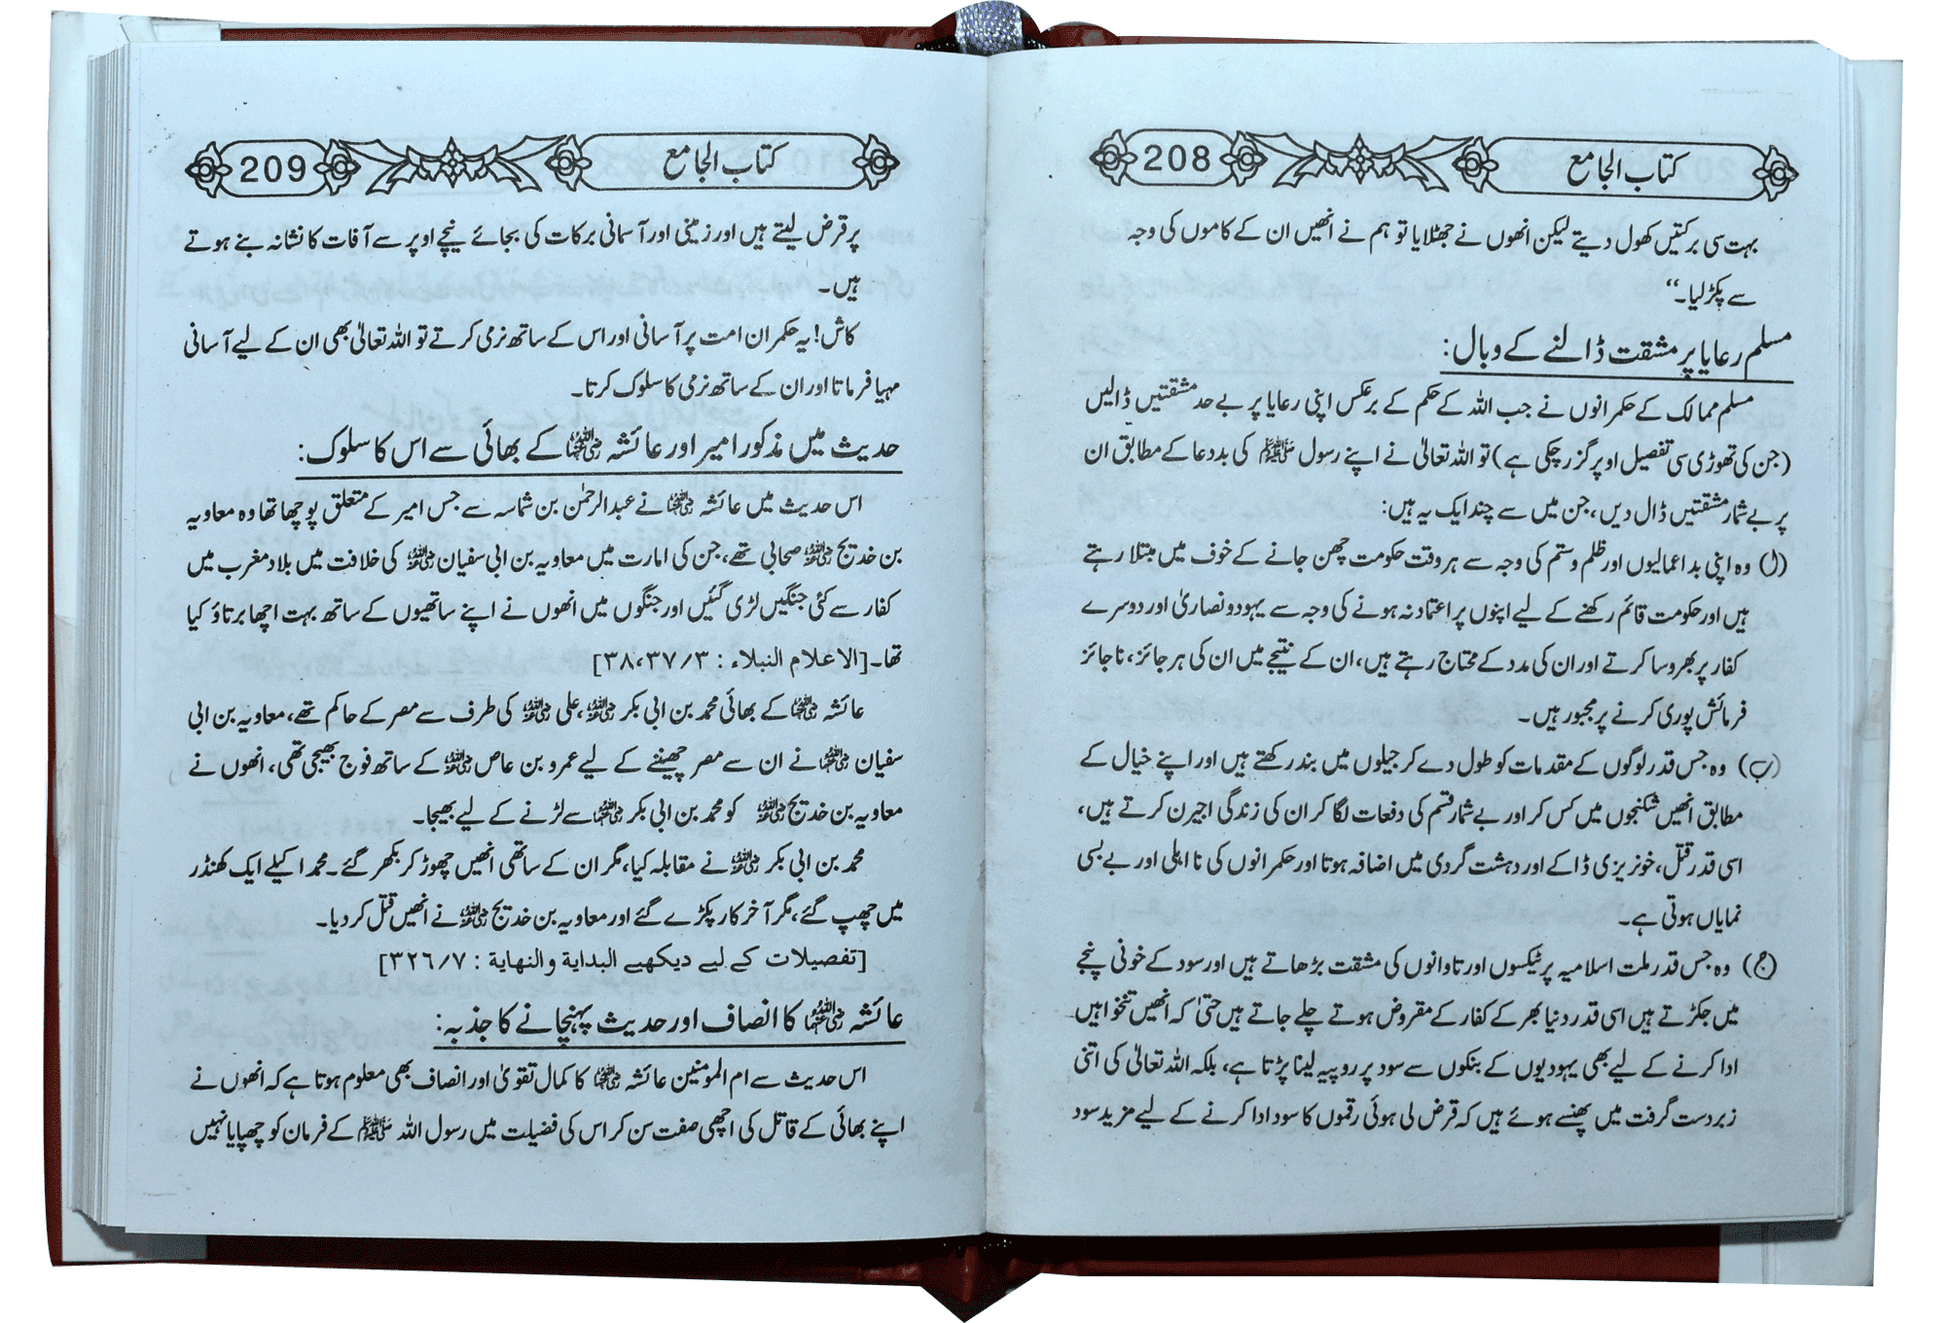 کتاب الجامع 208
بہت سی برکتیں کھول دیتے لیکن انھوں نے جھٹلایا تو ہم نے انھیں ان کے کاموں کی وجہ
سے پکڑ لیا۔“
مسلم رعایا پر مشقت ڈالنے کے وبال:
مسلم ممالک کے حکمرانوں نے جب اللہ کے حکم کے برعکس اپنی رعایا پر بے حد مشقتیں ڈالیں
(جن کی تھوڑی سی تفصیل اوپر گزر چکی ہے) تو اللہ تعالیٰ نے اپنے رسول ﷺ کی بددعا کے مطابق ان
پر بے شمار مشقتیں ڈال دیں، جن میں سے چند ایک یہ ہیں:
(ا) وہ اپنی بداعمالیوں اور ظلم و ستم کی وجہ سے ہر وقت حکومت چھن جانے کے خوف میں مبتلا رہتے
ہیں اور حکومت قائم رکھنے کے لیے اپنوں پر اعتماد نہ ہونے کی وجہ سے یہود و نصاریٰ اور دوسرے
کفار پر بھروسا کرتے اور ان کی مدد کے محتاج رہتے ہیں، ان کے نتیجے میں ان کی ہر جائز، ناجائز
فرمائش پوری کرنے پر مجبور ہیں۔
(ب) وہ جس قدر لوگوں کے مقدمات کو طول دے کر جیلوں میں بند رکھتے ہیں اور اپنے خیال کے
مطابق انھیں شکنجوں میں کس کر اور بے شمار قسم کی دفعات لگا کر ان کی زندگی اجیرن کرتے ہیں،
اسی قدر قتل، خونریزی ڈاکے اور دہشت گردی میں اضافہ ہوتا اور حکمرانوں کی نااہلی اور بے بسی
نمایاں ہوتی ہے۔
(ج) وہ جس قدر ملت اسلامیہ پر ٹیکسوں اور تاوانوں کی مشقت بڑھاتے ہیں اور سود کے خونی پنجے
میں جکڑتے ہیں اسی قدر دنیا بھر کے کفار کے مقروض ہوتے چلے جاتے ہیں حتیٰ کہ انھیں تنخواہیں
ادا کرنے کے لیے بھی یہودیوں کے بنکوں سے سود پر روپیہ لینا پڑتا ہے، بلکہ اللہ تعالیٰ کی اتنی
زبردست گرفت میں پھنسے ہوئے ہیں کہ قرض لی ہوئی رقموں کا سود ادا کرنے کے لیے مزید سود
کتاب الجامع 209
پر قرض لیتے ہیں اور زمینی اور آسمانی برکات کی بجائے نیچے اوپر سے آفات کا نشانہ بنے ہوتے
ہیں۔
کاش! یہ حکمران امت پر آسانی اور اس کے ساتھ نرمی کرتے تو اللہ تعالیٰ بھی ان کے لیے آسانی
مہیا فرماتا اور ان کے ساتھ نرمی کا سلوک کرتا۔
حدیث میں مذکور امیر اور عائشہ رضی اللہ عنہا کے بھائی سے اس کا سلوک:
اس حدیث میں عائشہ رضی اللہ عنہا نے عبدالرحمٰن بن شماسہ سے جس امیر کے متعلق پوچھا تھا وہ معاویہ
بن خدیج رضی اللہ عنہ صحابی تھے، جن کی امارت میں معاویہ بن ابی سفیان رضی اللہ عنہ کی خلافت میں بلاد مغرب میں
کفار سے کئی جنگیں لڑی گئیں اور جنگوں میں انھوں نے اپنے ساتھیوں کے ساتھ بہت اچھا برتاؤ کیا
تھا۔ [الاعلام النبلاء : ۳/۳۷، ۳۸]
عائشہ رضی اللہ عنہا کے بھائی محمد بن ابی بکر رضی اللہ عنہ، علی رضی اللہ عنہ کی طرف سے مصر کے حاکم تھے، معاویہ بن ابی
سفیان رضی اللہ عنہ نے ان سے مصر چھیننے کے لیے عمرو بن عاص رضی اللہ عنہ کے ساتھ فوج بھیجی تھی، انھوں نے
معاویہ بن خدیج رضی اللہ عنہ کو محمد بن ابی بکر رضی اللہ عنہما سے لڑنے کے لیے بھیجا۔
محمد بن ابی بکر رضی اللہ عنہ نے مقابلہ کیا، مگر ان کے ساتھی انھیں چھوڑ کر بکھر گئے۔ محمد اکیلے ایک کھنڈر
میں چھپ گئے، مگر آخر کار پکڑے گئے اور معاویہ بن خدیج رضی اللہ عنہ نے انھیں قتل کر دیا۔
[تفصیلات کے لیے دیکھیے البدایة والنهایة : ۷/۳۲۶]
عائشہ رضی اللہ عنہا کا انصاف اور حدیث پہنچانے کا جذبہ:
اس حدیث سے ام المومنین عائشہ رضی اللہ عنہا کا کمال تقویٰ اور انصاف بھی معلوم ہوتا ہے کہ انھوں نے
اپنے بھائی کے قاتل کی اچھی صفت سن کر اس کی فضیلت میں رسول اللہ ﷺ کے فرمان کو چھپایا نہیں